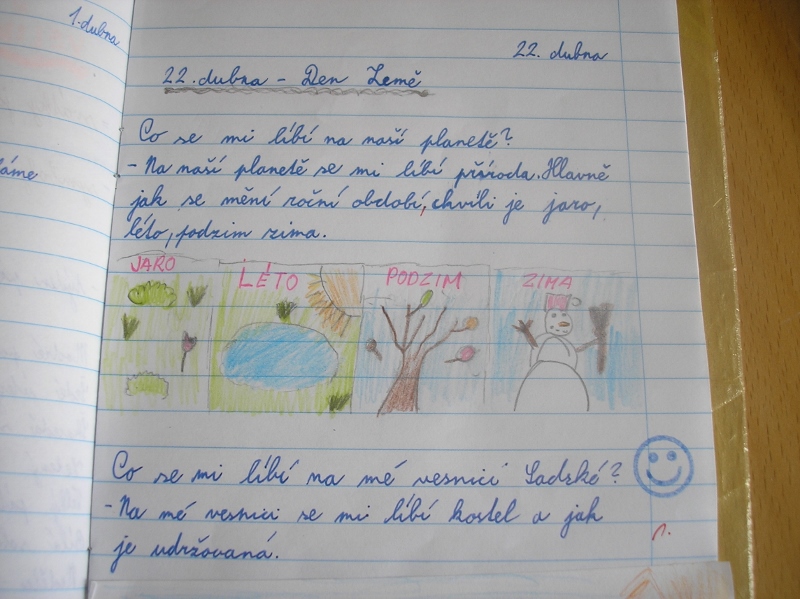 1. dubna
22. dubna
22. dubna - Den Země
Co se mi líbí na naší planetě?
- Na naší planetě se mi líbí příroda. Hlavně
jak se mění roční období, chvíli je jaro,
léto, podzim zima.
JARO
LÉTO
PODZIM
ZIMA
Co se mi líbí na mé vesnici Sadské?
- Na mé vesnici se mi líbí kostel a jak
je udržovaná.
1.